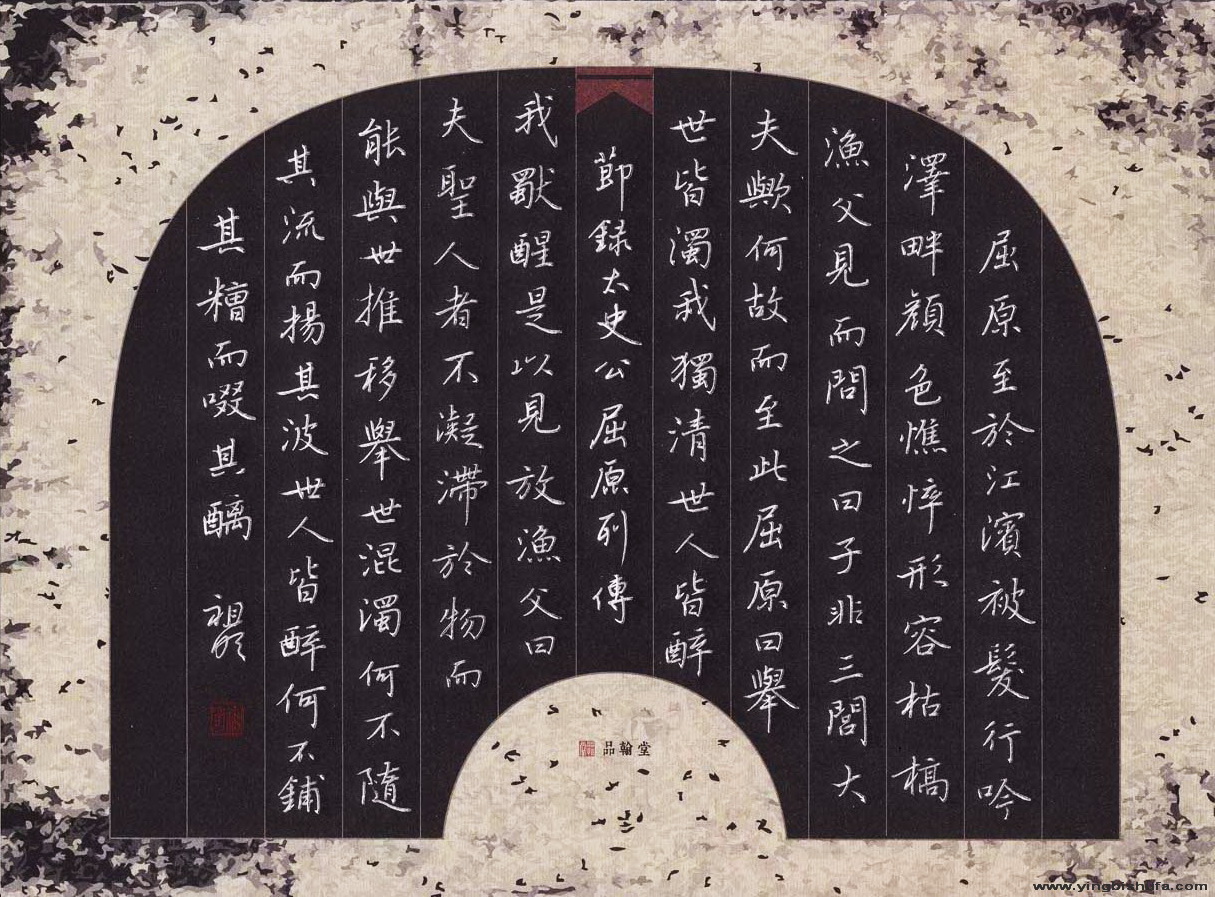 屈原至於江濱被髮行吟
澤畔顏色憔悴形容枯槁
漁父見而問之曰子非三閭大
夫歟何故而至此屈原曰舉
世皆濁我獨清世人皆醉
節錄太史公屈原列傳
我獨醒是以見放漁父曰
夫聖人者不凝滯於物而
能與世推移舉世混濁何不隨
其流而揚其波世人皆醉何不鋪
其糟而啜其醨
品翰堂
www.yingbishufa.com